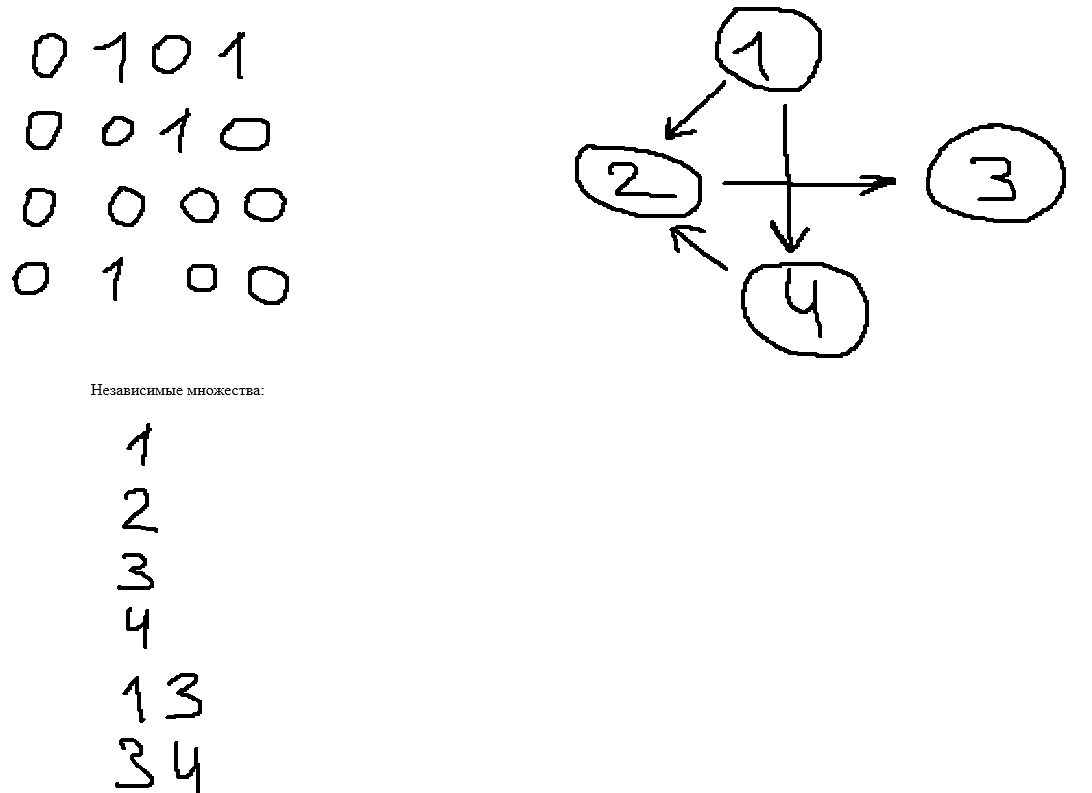 0 1 0 1
0 0 1 0
0 0 0 0
0 1 0 0
1
2
3
4
Независимые множества:
1
2
3
4
1 3
3 4